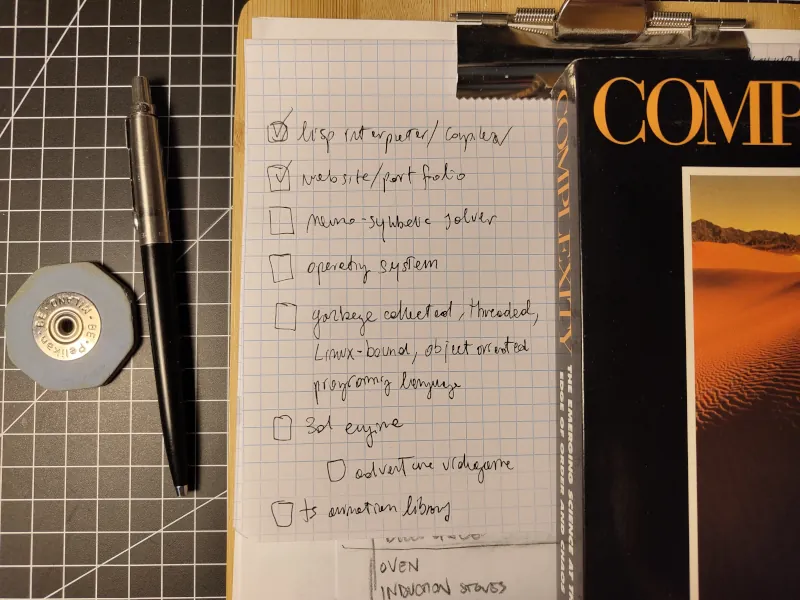 lisp interpreter/compiler/
website/portfolio
neuro-symbolic solver
operating system
garbage collected, threaded,
Linux-bound, object oriented
programming language
3d engine
adventure videogame
ts animation library
OVEN
INDUCTION STOVES
COMP
COMPLEXITY
THE EMERGING SCIENCE AT THE
EDGE OF ORDER AND CHAOS
Pelikan
BE
MILANO